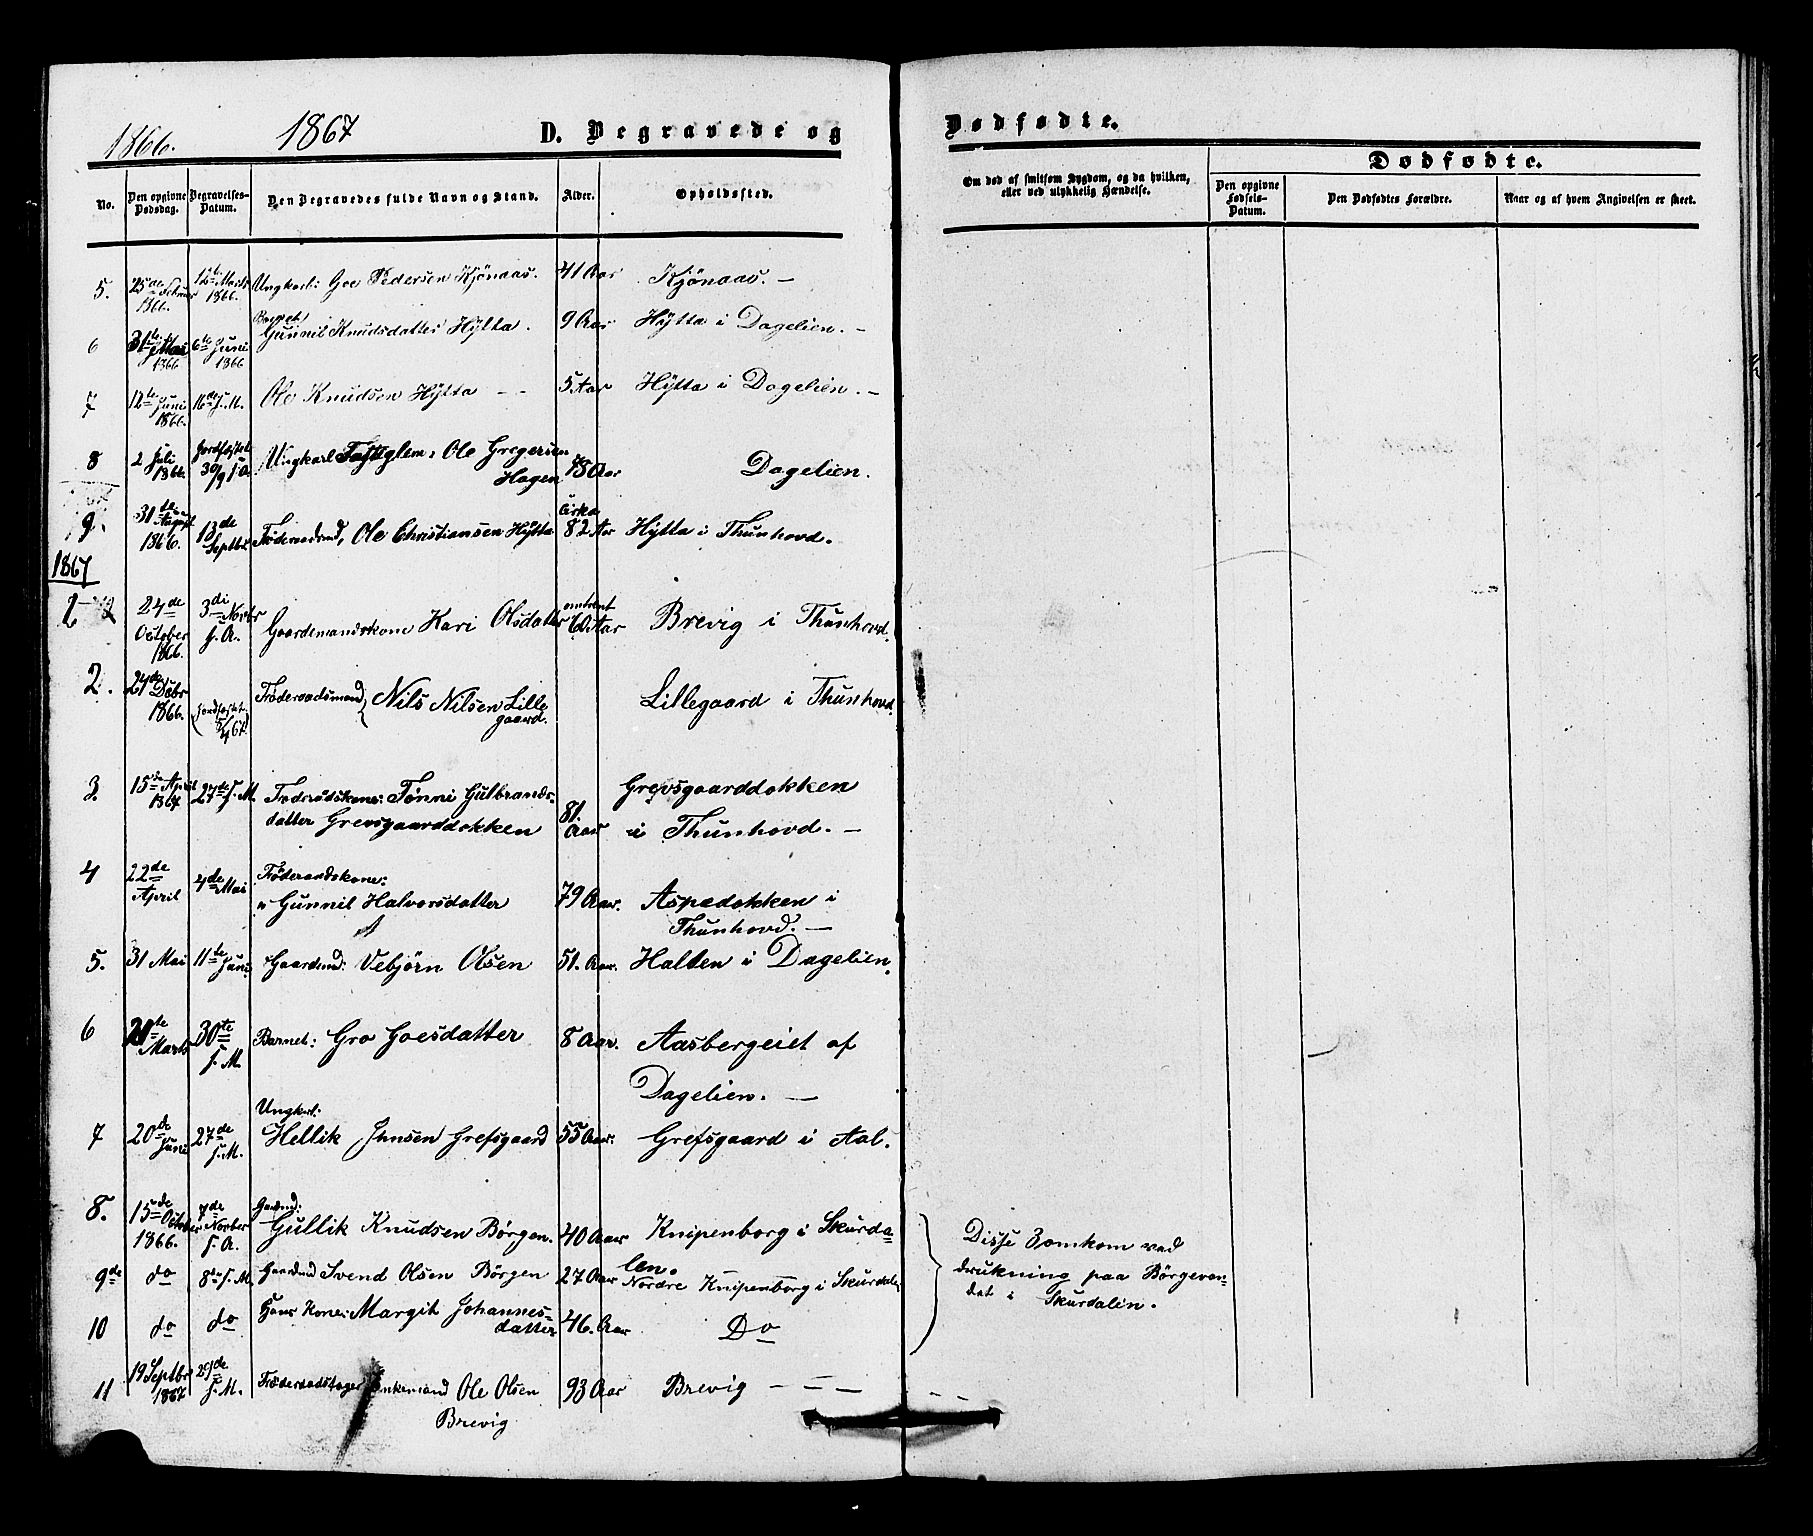 1866.
1867
D. Begravede og
Dødfødte.
No.
Den opgivne Dødsdag.
Begravelses-Datum.
Den Begravedes fulde Navn og Stand.
Alder.
Opholdssted.
Om død af smitsom Sygdom, og da hvilken, eller ved ulykkelig Hændelse.
Dødfødte.
Den opgivne Fødsels-Datum.
Den Dødfødtes Forældre.
Naar og af hvem Angivelsen er skeet.
5. 25de Februar 1866. 12te Marts 1866. Ungkarl: Goe Pedersen Kjönaas. 41 Aar Kjönaas. —
6 31te Mai 1866 6te Juni 1866 Barnet Gunnil Knudsdatter Hÿtta. 9 Aar Hÿtta i Dagelien. —
7 12te Juni 1866. 16de J. M. Ole Knudsen Hÿtta — — 5 Aar Hÿtta i Dagelien. —
8 2 Juli 1866. Jordfæstet 30/9 s. A. Ungkarl Fattiglem: Ole Gregersen
Hagen 78 Aar Dagelien.
9. 31te August 1866. 13de Septbr Föderaadmd, Ole Christiansen Hÿtta cirka 82 Aar Hÿtta i Thunhovd.
1867
1 24de October 1866. 3di Novbr s. A. Gaardmandskone Kari Olsdatter omtrent 60 Aar Brevig i Thunhovd.
2. 27de Debr 1866. Jordfæstet 67. Föderaadsmand Nils Nilsen Lille
gaard. Lillegaard i Thunhovd.
3. 15de April 1867 27de s. M. Föderaadskone: Tönni Gulbrands-
datter Grevsgaarddokken 81. Aar Grevsgaarddokken
i Thunhovd. —
4 22de April 4de Mai Föderaadskone:
Gunnil Halvorsdatter 79 Aar. Aspedokken i
Thunhovd. —
5. 31 Mai 11te Juni Gaardmd: Vebjörn Olsen 51. Aar. Halten i Dagelien.
6 Marts 30te s. M. Barnet: Gro Goesdatter 8 Aar. Aasbergeiet af
Dagelien. —
7 20de Juni 27de s. M. Ungkarl:
Hellik Jonsen Grefsgaard 55 Aar: Grefsgaard i Aal.
8. 15de October 1866. 7de Novber s. A. Gaardmd:
Gullik Knudsen Börgen. 40 Aar Knipenborg i Skurda-
len.
9de do 8de s. M. Gaardmd Svend Olsen Börgen 27 Aar Nordre Knipenborg i Skurdalen
10 do do Hans Kone: Margit Johannes-
datter 46. Aar Do
Disse 3 omkom ved
drukning paa Börgevan-
det i Skurdalen.
11 19 Septbr 1867 29de s. M. Föderaadstager Enkemand Ole Olsen
Brevig 93 Aar Brevig — — —